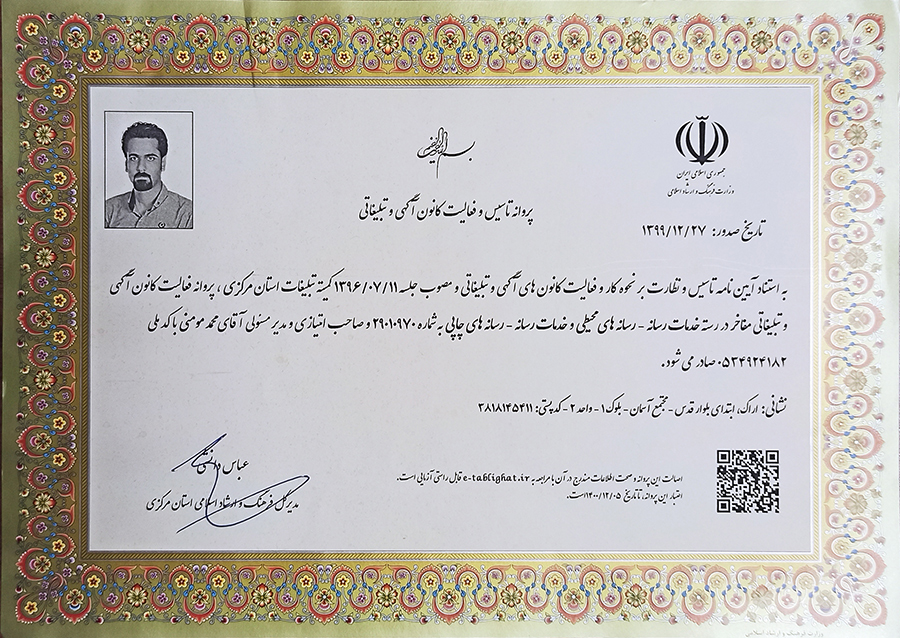 بسم الله الرحمن الرحیم
جمهوری اسلامی ایران
وزارت فرهنگ و ارشاد اسلامی
پروانه تاسیس و فعالیت کانون آگهی و تبلیغاتی
تاریخ صدور: ۱۳۹۹/۱۲/۲۷
به استناد آیین نامه تاسیس و نظارت بر نحوه کار و فعالیت کانون های آگهی و تبلیغاتی و مصوب جلسه ۱۳۹۶/۰۷/۱۱ کمیته تبلیغات استان مرکزی ، پروانه فعالیت کانون آگهی
و تبلیغاتی مفاخر در رسته خدمات رسانه - رسانه های محیطی و خدمات رسانه - رسانه های چاپی به شماره ۲۹۰۱۰۹۷۰ و صاحب امتیازی و مدیر مسئولی آقای محمد مومنی با کد ملی
۰۵۳۴۹۲۴۱۸۲ صادر می شود.
نشانی: اراک، ابتدای بلوار قدس - مجتمع آسمان - بلوک ۱ - واحد ۲ - کد پستی: ۳۸۱۸۱۴۵۴۱۱
اصالت این پروانه و صحت اطلاعات مندرج در آن با مراجعه به e-tablighat.ir قابل راستی آزمایی است.
اعتبار این پروانه، تا تاریخ ۱۴۰۰/۱۲/۰۵ است.
عباس دانشی
مدیر کل فرهنگ و ارشاد اسلامی استان مرکزی
وزارت فرهنگ و ارشاد اسلامی